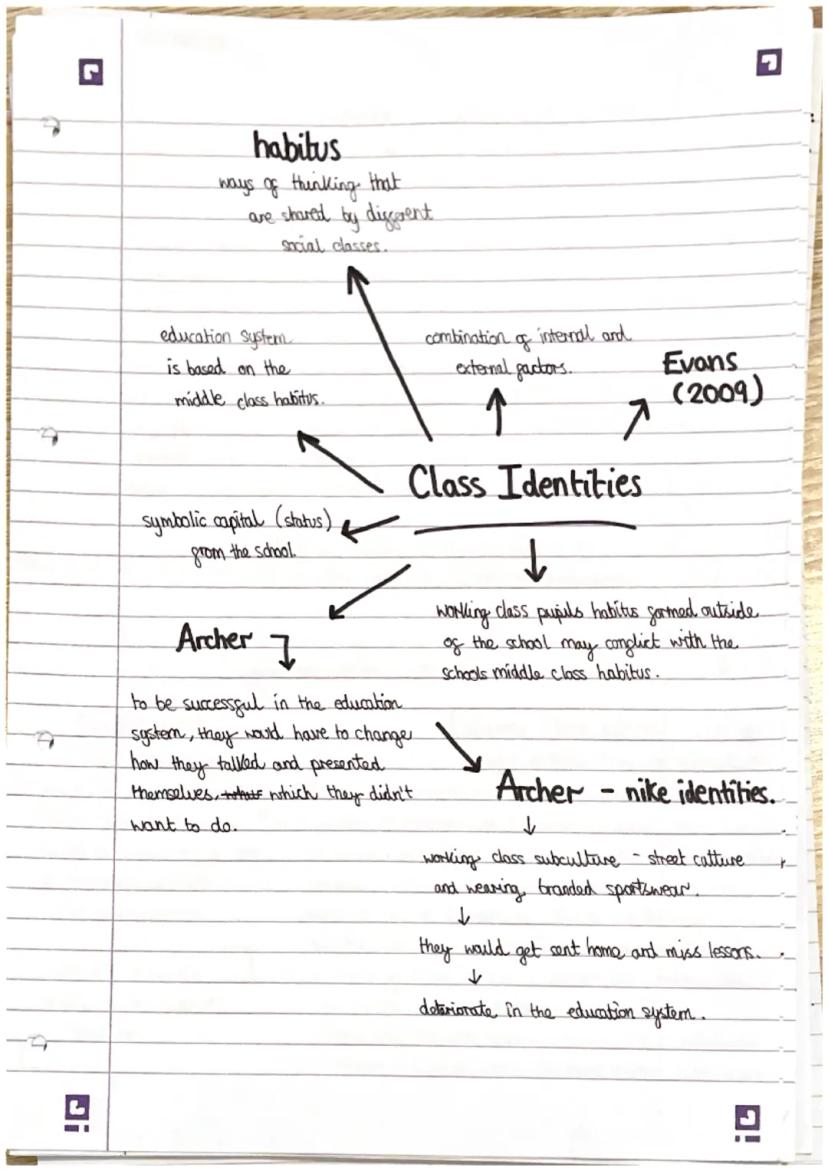 habitus
ways of thinking that
are shared by different
social classes.
education system
is based on the
middle class habitus.
combination of internal and
external factors.
Evans
(2009)
Class Identities
symbolic capital (status)
from the school.
working class pupils habitus formed outside
of the school may conflict with the
schools middle class habitus.
Archer
to be successful in the education
system, they would have to change
how they talked and presented
themselves, which they didn't
want to do.
Archer - nike identities.
working class subculture - street culture
and wearing branded sportswear.
they would get sent home and miss lessons.
deteriorate in the education system.